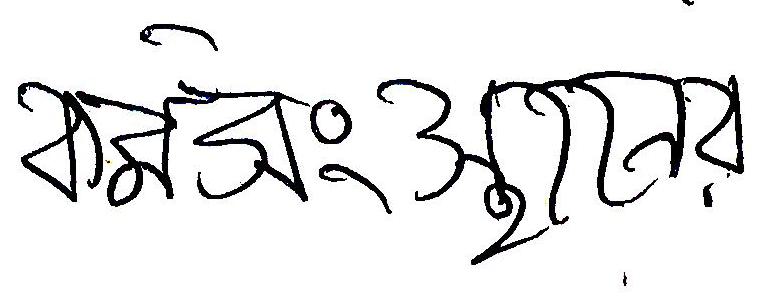 কর্মসংস্থানের